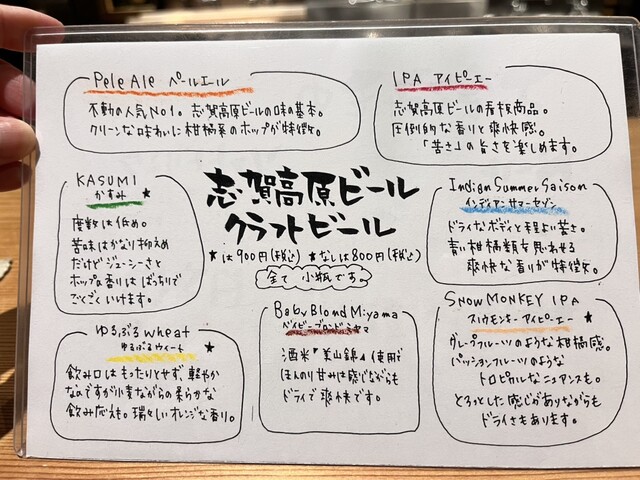 Pele Ale ペールエール
不動の人気No1。志賀高原ビールの味の基本。
クリーンな味わいに柑橘系のホップが特徴。
IPA アイピーエー
志賀高原ビールの看板商品。
圧倒的な香りと爽快感。
「苦さ」の旨さを楽しめます。
KASUMI
かすみ ★
度数は低め。
苦味はかなり抑えめ
だけどジューシーさと
ホップの香りはばっちりで
ごくごくいけます。
志賀高原ビール
クラフトビール
★は900円(税込) ★なしは800円(税込)
全て小瓶です。
Indian Summer Saison
インディアンサマーセゾン
ドライなボディと程よい苦さ。
青い柑橘類を思わせる
爽快な香りが特徴。
ゆるぶる wheat
ゆるぶるウィート
飲み口はもったりせず、軽やか
なのですが小麦ながらの柔らかな
飲み応えも。瑞々しいオレンジな香り。
Baby Blond Miyama
ベイビーブロンドミヤマ
酒米『美山錦』使用で
ほんのり甘みは感じながらも
ドライで爽快です。
SNOW MONKEY IPA
スノウモンキーアイピーエー ★
グレープフルーツのような柑橘感。
パッションフルーツのような
トロピカルなニュアンスも。
とろっとした感じがありながらも
ドライさもあります。